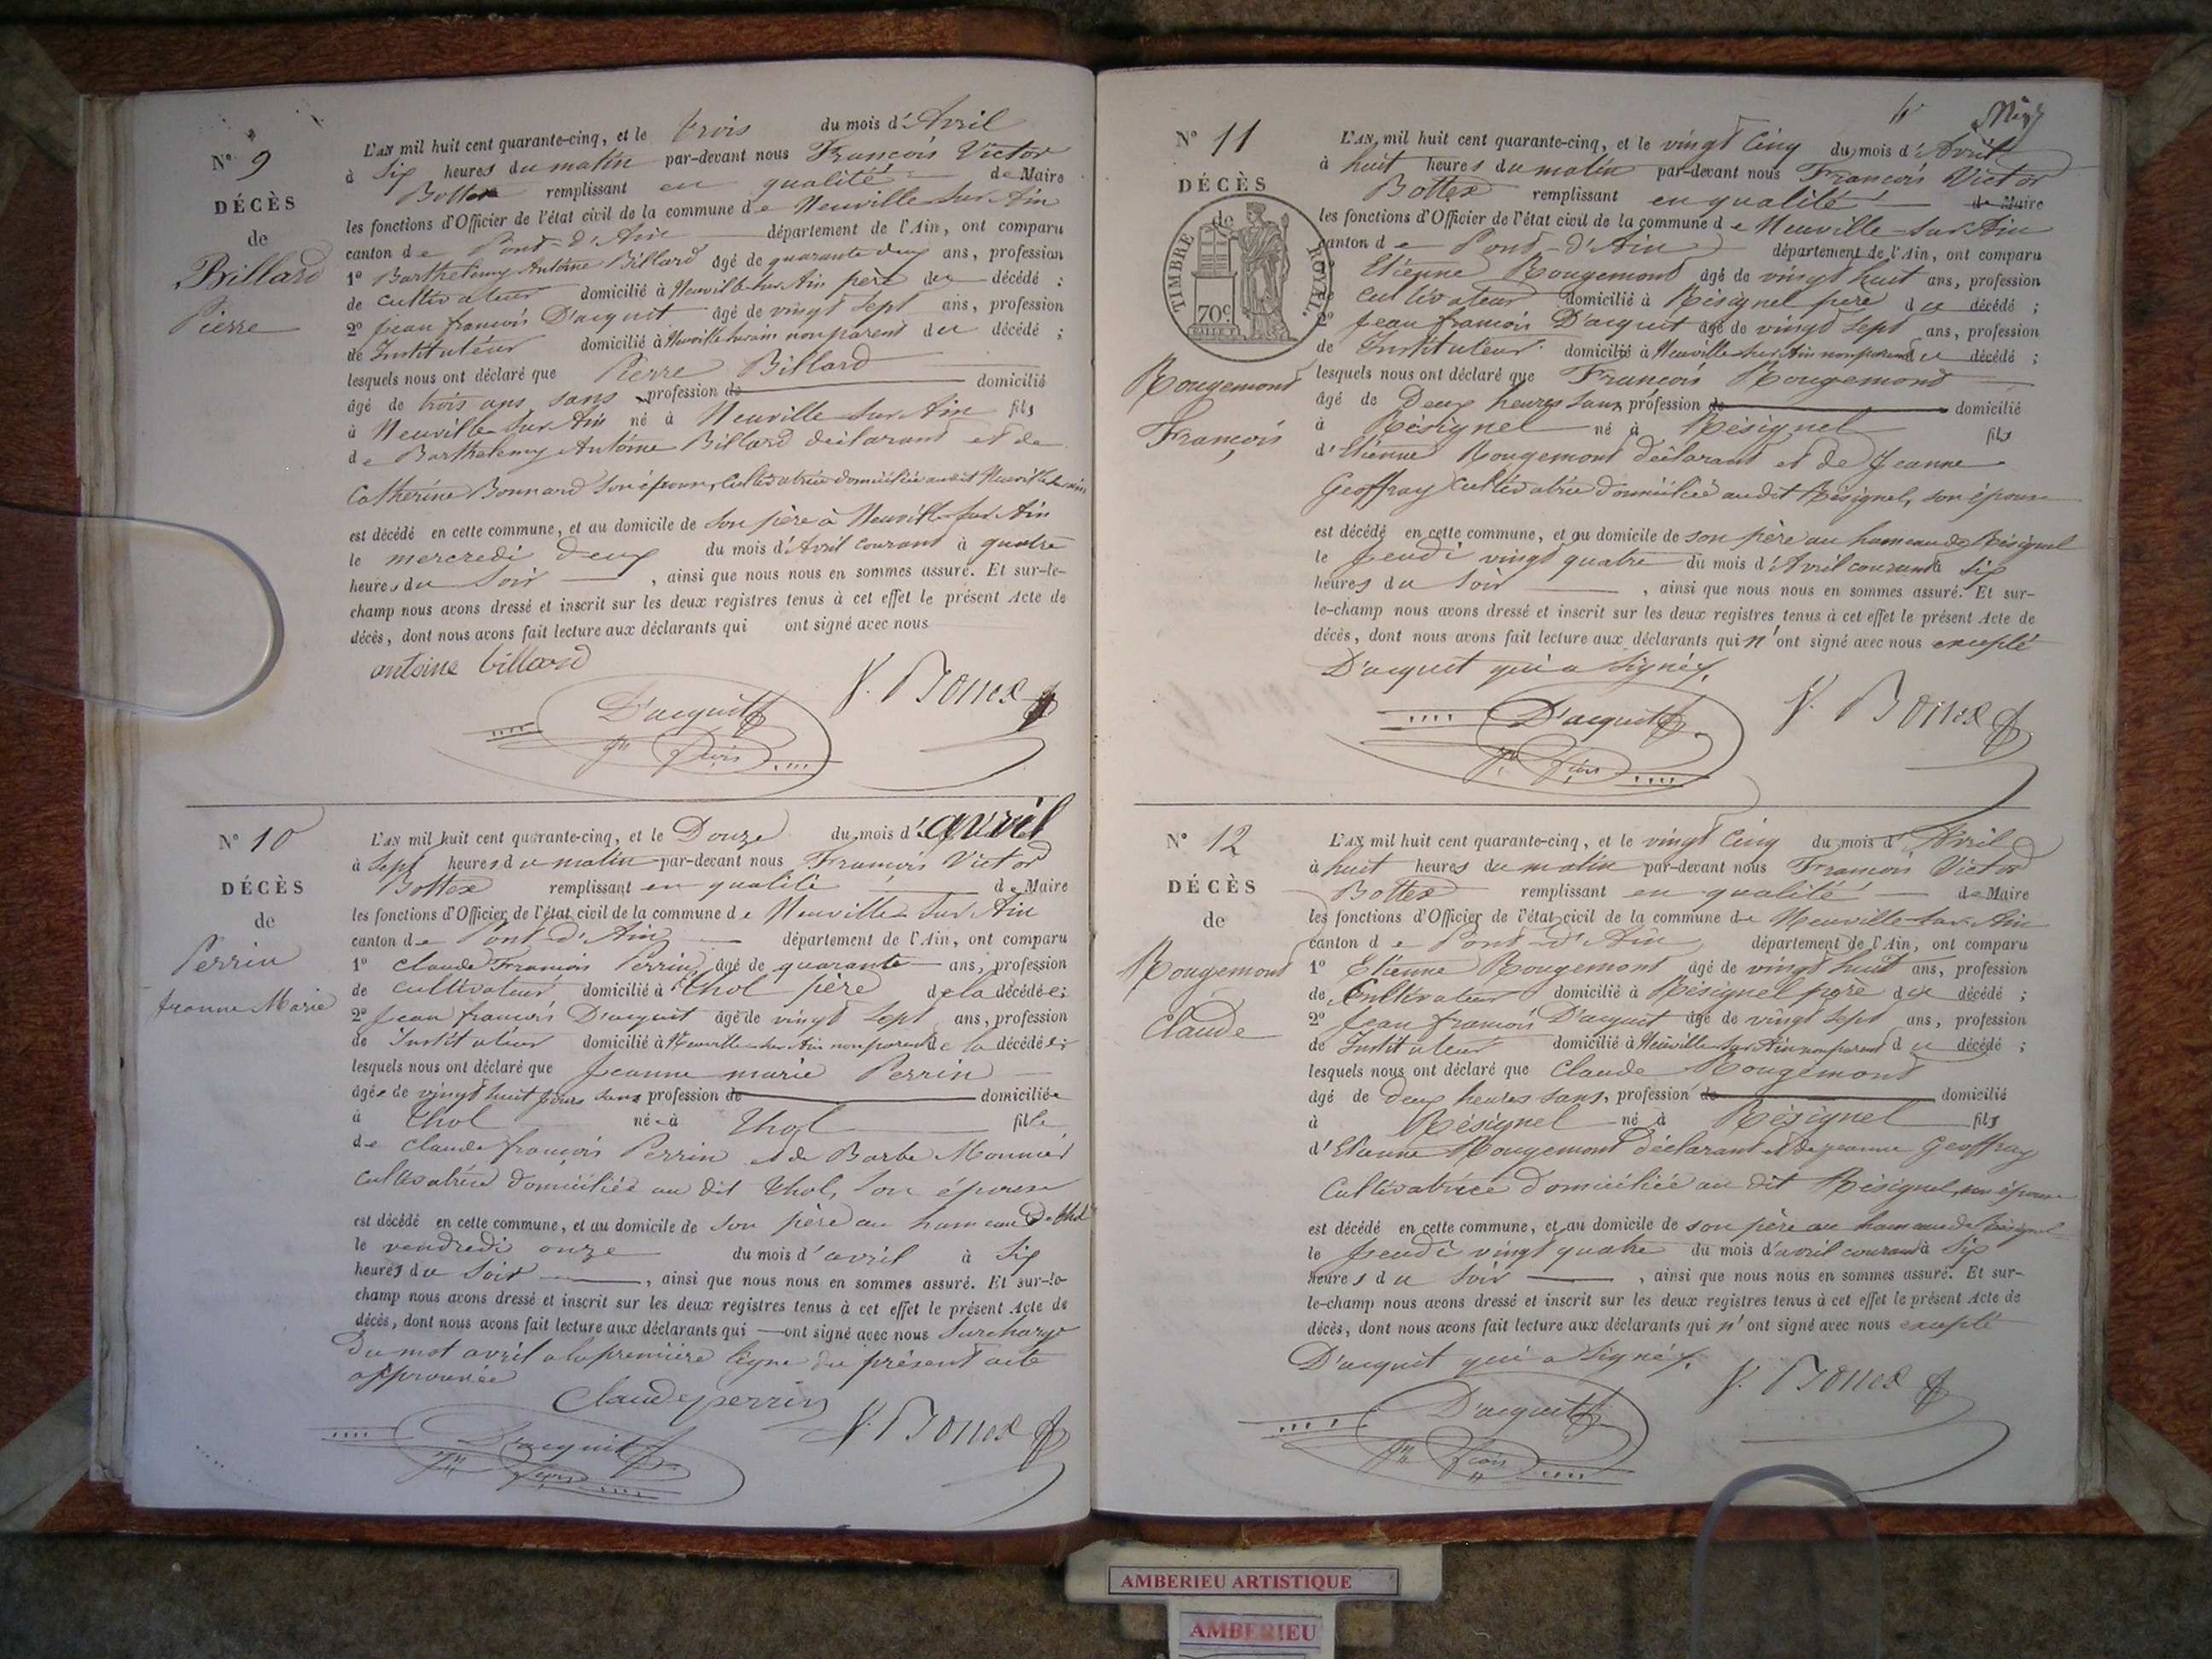 N° 9
DÉCÈS
de
Billard
Pierre
L'AN mil huit cent quarante-cinq, et le trois du mois d'Avril
à Six heures du matin par-devant nous François Victor
Bottex remplissant en qualité de Maire
les fonctions d'Officier de l'état civil de la commune de Neuville sur Ain
canton de Pont-d'Ain département de l'Ain, ont comparu
1° Barthelemy Antoine Billard âgé de quarante deux ans, profession
de cultivateur domicilié à Neuville sur Ain père du décédé ;
2° Jean françois D'acquit âgé de vingt sept ans, profession
de Instituteur domicilié à Neuville sur ain non parent du décédé ;
lesquels nous ont déclaré que Pierre Billard
âgé de trois ans sans profession de domicilié
à Neuville sur Ain né à Neuville sur Ain fils
de Barthelemy Antoine Billard déclarant et de
Catherine Bonnard son épouse, Cultivatrice domiciliée audit Neuville sur ain
est décédé en cette commune, et au domicile de son père à Neuville sur Ain
le mercredi deux du mois d'Avril courant à quatre
heures du Soir , ainsi que nous nous en sommes assuré. Et sur-le-
champ nous avons dressé et inscrit sur les deux registres tenus à cet effet le présent Acte de
décès, dont nous avons fait lecture aux déclarants qui ont signé avec nous
antoine billard
D'acquit
Jn fçois
V. Bottex
N° 10
DÉCÈS
de
Perrin
Jeanne Marie
L'AN mil huit cent quarante-cinq, et le Douze du mois d'avril
à Sept heures du matin par-devant nous François Victor
Bottex remplissant en qualité de Maire
les fonctions d'Officier de l'état civil de la commune de Neuville sur Ain
canton de Pont-d'Ain département de l'Ain, ont comparu
1° Claude François Perrin, âgé de quarante ans, profession
de cultivateur domicilié à Thol père de la décédée ;
2° Jean françois D'acquit âgé de vingt Sept ans, profession
de Instituteur domicilié à Neuville sur Ain non parent de la décédée ;
lesquels nous ont déclaré que Jeanne marie Perrin
âgée de vingt huit jours sans profession de domiciliée
à Thol née à Thol fille
de Claude françois Perrin et de Barbe Monnier
cultivatrice domiciliée au dit Thol, son épouse
est décédé en cette commune, et au domicile de son père au hameau de Thol
le vendredi onze du mois d'avril à Six
heures du Soir , ainsi que nous nous en sommes assuré. Et sur-le-
champ nous avons dressé et inscrit sur les deux registres tenus à cet effet le présent Acte de
décès, dont nous avons fait lecture aux déclarants qui ont signé avec nous Surcharge
Du mot avril a la première ligne du présent acte
approuvée
Claude perrin
D'acquit
Jn fçois
V. Bottex
N° 11
DÉCÈS
de
TIMBRE ROYAL.
70c
Rougemont
François
L'AN mil huit cent quarante-cinq, et le vingt Cinq du mois d'Avril
à huit heures du matin par-devant nous François Victor
Bottex remplissant en qualité de Maire
les fonctions d'Officier de l'état civil de la commune de Neuville-sur Ain
canton de Pont-d'Ain département de l'Ain, ont comparu
Etienne Rougemont âgé de vingt huit ans, profession
de Cultivateur domicilié à Résignel père du décédé ;
2° Jean françois D'acquit âgé de vingt sept ans, profession
de Instituteur domicilié à Neuville sur Ain non parent du décédé ;
lesquels nous ont déclaré que François Rougemont
âgé de Deux heures sans profession de domicilié
à Résignel né à Résignel fils
d'Etienne Rougemont déclarant et de Jeanne
Geoffray Cultivatrice domiciliée audit Résignel, son épouse
est décédé en cette commune, et au domicile de son père au hameau de Résignel
le Jeudi vingt quatre du mois d'Avril courant à Six
heures du Soir , ainsi que nous nous en sommes assuré. Et sur-
le-champ nous avons dressé et inscrit sur les deux registres tenus à cet effet le présent Acte de
décès, dont nous avons fait lecture aux déclarants qui n'ont signé avec nous excepté
D'acquit qui a signé.
D'acquit
Jn fçois
V. Bottex
N° 12
DÉCÈS
de
Rougemont
Claude
L'AN mil huit cent quarante-cinq, et le vingt Cinq du mois d'Avril
à huit heures du matin par-devant nous François Victor
Bottex remplissant en qualité de Maire
les fonctions d'Officier de l'état civil de la commune de Neuville-sur-Ain
canton de Pont-d'Ain département de l'Ain, ont comparu
1° Etienne Rougemont âgé de vingt huit ans, profession
de Cultivateur domicilié à Résignel père du décédé ;
2° Jean françois D'acquit âgé de vingt sept ans, profession
de Instituteur domicilié à Neuville sur Ain non parent du décédé ;
lesquels nous ont déclaré que Claude Rougemont
âgé de deux heures sans, profession de domicilié
à Résignel né à Résignel fils
d'Etienne Rougemont déclarant et de jeanne Geoffray
Cultivatrice domiciliée au dit Résignel, son épouse
est décédé en cette commune, et au domicile de son père au hameau de Résignel
le Jeudi vingt quatre du mois d'avril courant à Six
heures du Soir , ainsi que nous nous en sommes assuré. Et sur-
le-champ nous avons dressé et inscrit sur les deux registres tenus à cet effet le présent Acte de
décès, dont nous avons fait lecture aux déclarants qui n'ont signé avec nous excepté
D'acquit qui a signé.
D'acquit
Jn fçois
V. Bottex
AMBERIEU ARTISTIQUE
AMBERIEU